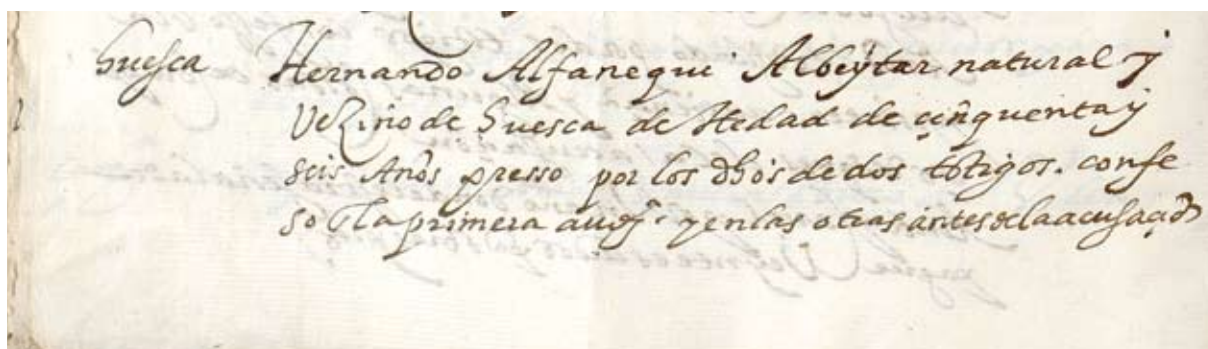 huesca Hernando Alfanequi Albeytar natural y
Vezino de huesca de Hedad de çinquenta y
seis Años presso por los dhos de dos tstigos. confe
so la primera audj.ª y en las otras antes de la acusaçõ